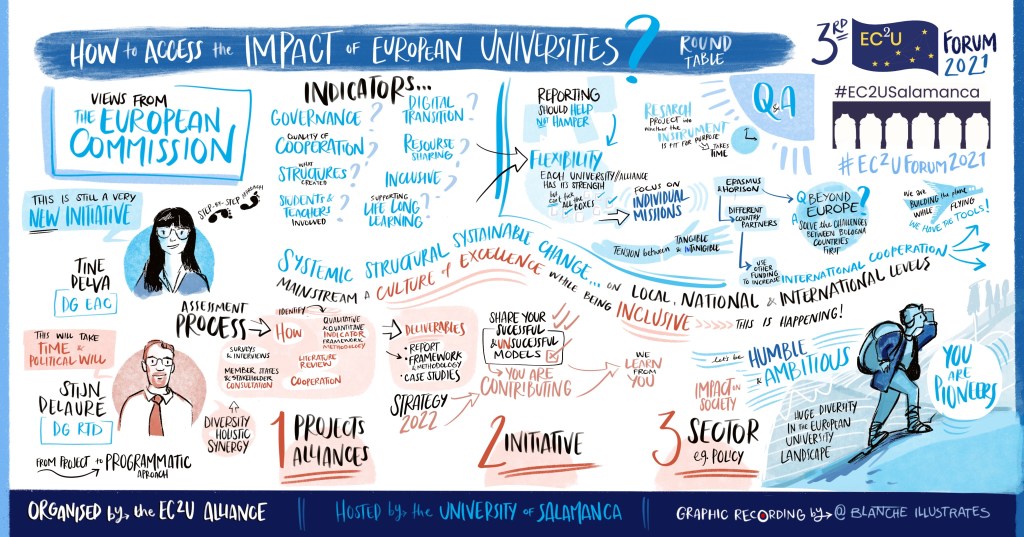 HOW to ACCESS the IMPACT of EUROPEAN UNIVERSITIES?
ROUND
TABLE
3RD
EC2U
FORUM
2021
#EC2USalamanca
#EC2UFORUM2021
VIEWS FROM
THE EUROPEAN
COMMISSION
THIS IS STILL A VERY
NEW INITIATIVE
STEP-BY-STEP APPROACH
TINE
DELVA
DG EAC
THIS WILL TAKE
TIME &
POLITICAL WILL
STIJN
DELAURE
DG RTD
FROM PROJECT to PROGRAMMATIC
APROACH
INDICATORS...
GOVERNANCE?
QUALITY OF
COOPERATION?
WHAT
STRUCTURES?
CREATED
STUDENTS &
TEACHERS?
INVOLVED
DIGITAL
TRANSITION?
RESOURSE
SHARING?
INCLUSIVE?
SUPPORTING
LIFE LONG
LEARNING?
REPORTING
SHOULD HELP
NOT HAMPER
FLEXIBILITY
EACH UNIVERSITY/ALLIANCE
HAS ITS STRENGTH
CAN'T TICK
ALL THE
BOXES
FOCUS ON
INDIVIDUAL
MISSIONS
TENSION BETWEEN TANGIBLE
& INTANGIBLE
Q&A
RESARCH
PROJECT into
WHETHER the
INSTRUMENT
IS FIT FOR PURPOSE
TAKES
TIME
ERASMUS
& HORISON
DIFFERENT
COUNTRY
PARTNERS
USE OTHER
FUNDING
TO INCREASE
Q BEYOND
EUROPE?
A SOLVE THE CHALLENGES
BETWEEN BOLOGNA
COUNTRIES
FIRST
WE ARE
BUILDING the plane
WHILE FLYING
WE HAVE THE TOOLS!
INTERNATIONAL COOPERATION
SYSTEMIC STRUCTURAL SUSTAINABLE CHANGE... ON LOCAL, NATIONAL & INTERNATIONAL LEVELS
MAINSTREAM A CULTURE of EXCELLENCE WHILE BEING INCLUSIVE
THIS IS HAPPENING!
ASSESSMENT
PROCESS
IDENTIFY
HOW
QUALITATIVE
& QUANTITIVE
INDICATOR
FRAMEWORK
METHODOLOGY
SURVEYS
& INTERVIEWS
MEMBER STATES
& STAKEHOLDER
CONSULTATION
LITERATURE
REVIEW
COOPERATION
DIVERSITY
HOLISTIC
SYNERGY
DELIVERABLES
• REPORT
• FRAMEWORK
& METHODOLOGY
• CASE STUDIES
STRATEGY
2022
SHARE YOUR
SUCESSFUL
& UNSUCCESSFUL
MODELS
YOU ARE
CONTRIBUTING
WE
LEARN
FROM
YOU
1 PROJECTS
ALLIANCES
2 INITIATIVE
3 SECTOR
e.g. POLICY
IMPACT ON
SOCIETY
let's be
HUMBLE
& AMBITIOUS
HUGE DIVERSITY
IN THE EUROPEAN
UNIVERSITY
LANDSCAPE
YOU
ARE
PIONEERS
ORGANISED by the EC2U ALLIANCE
HOSTED by the UNIVERSITY of SALAMANCA
GRAPHIC RECORDING by @ BLANCHE ILLUSTRATES